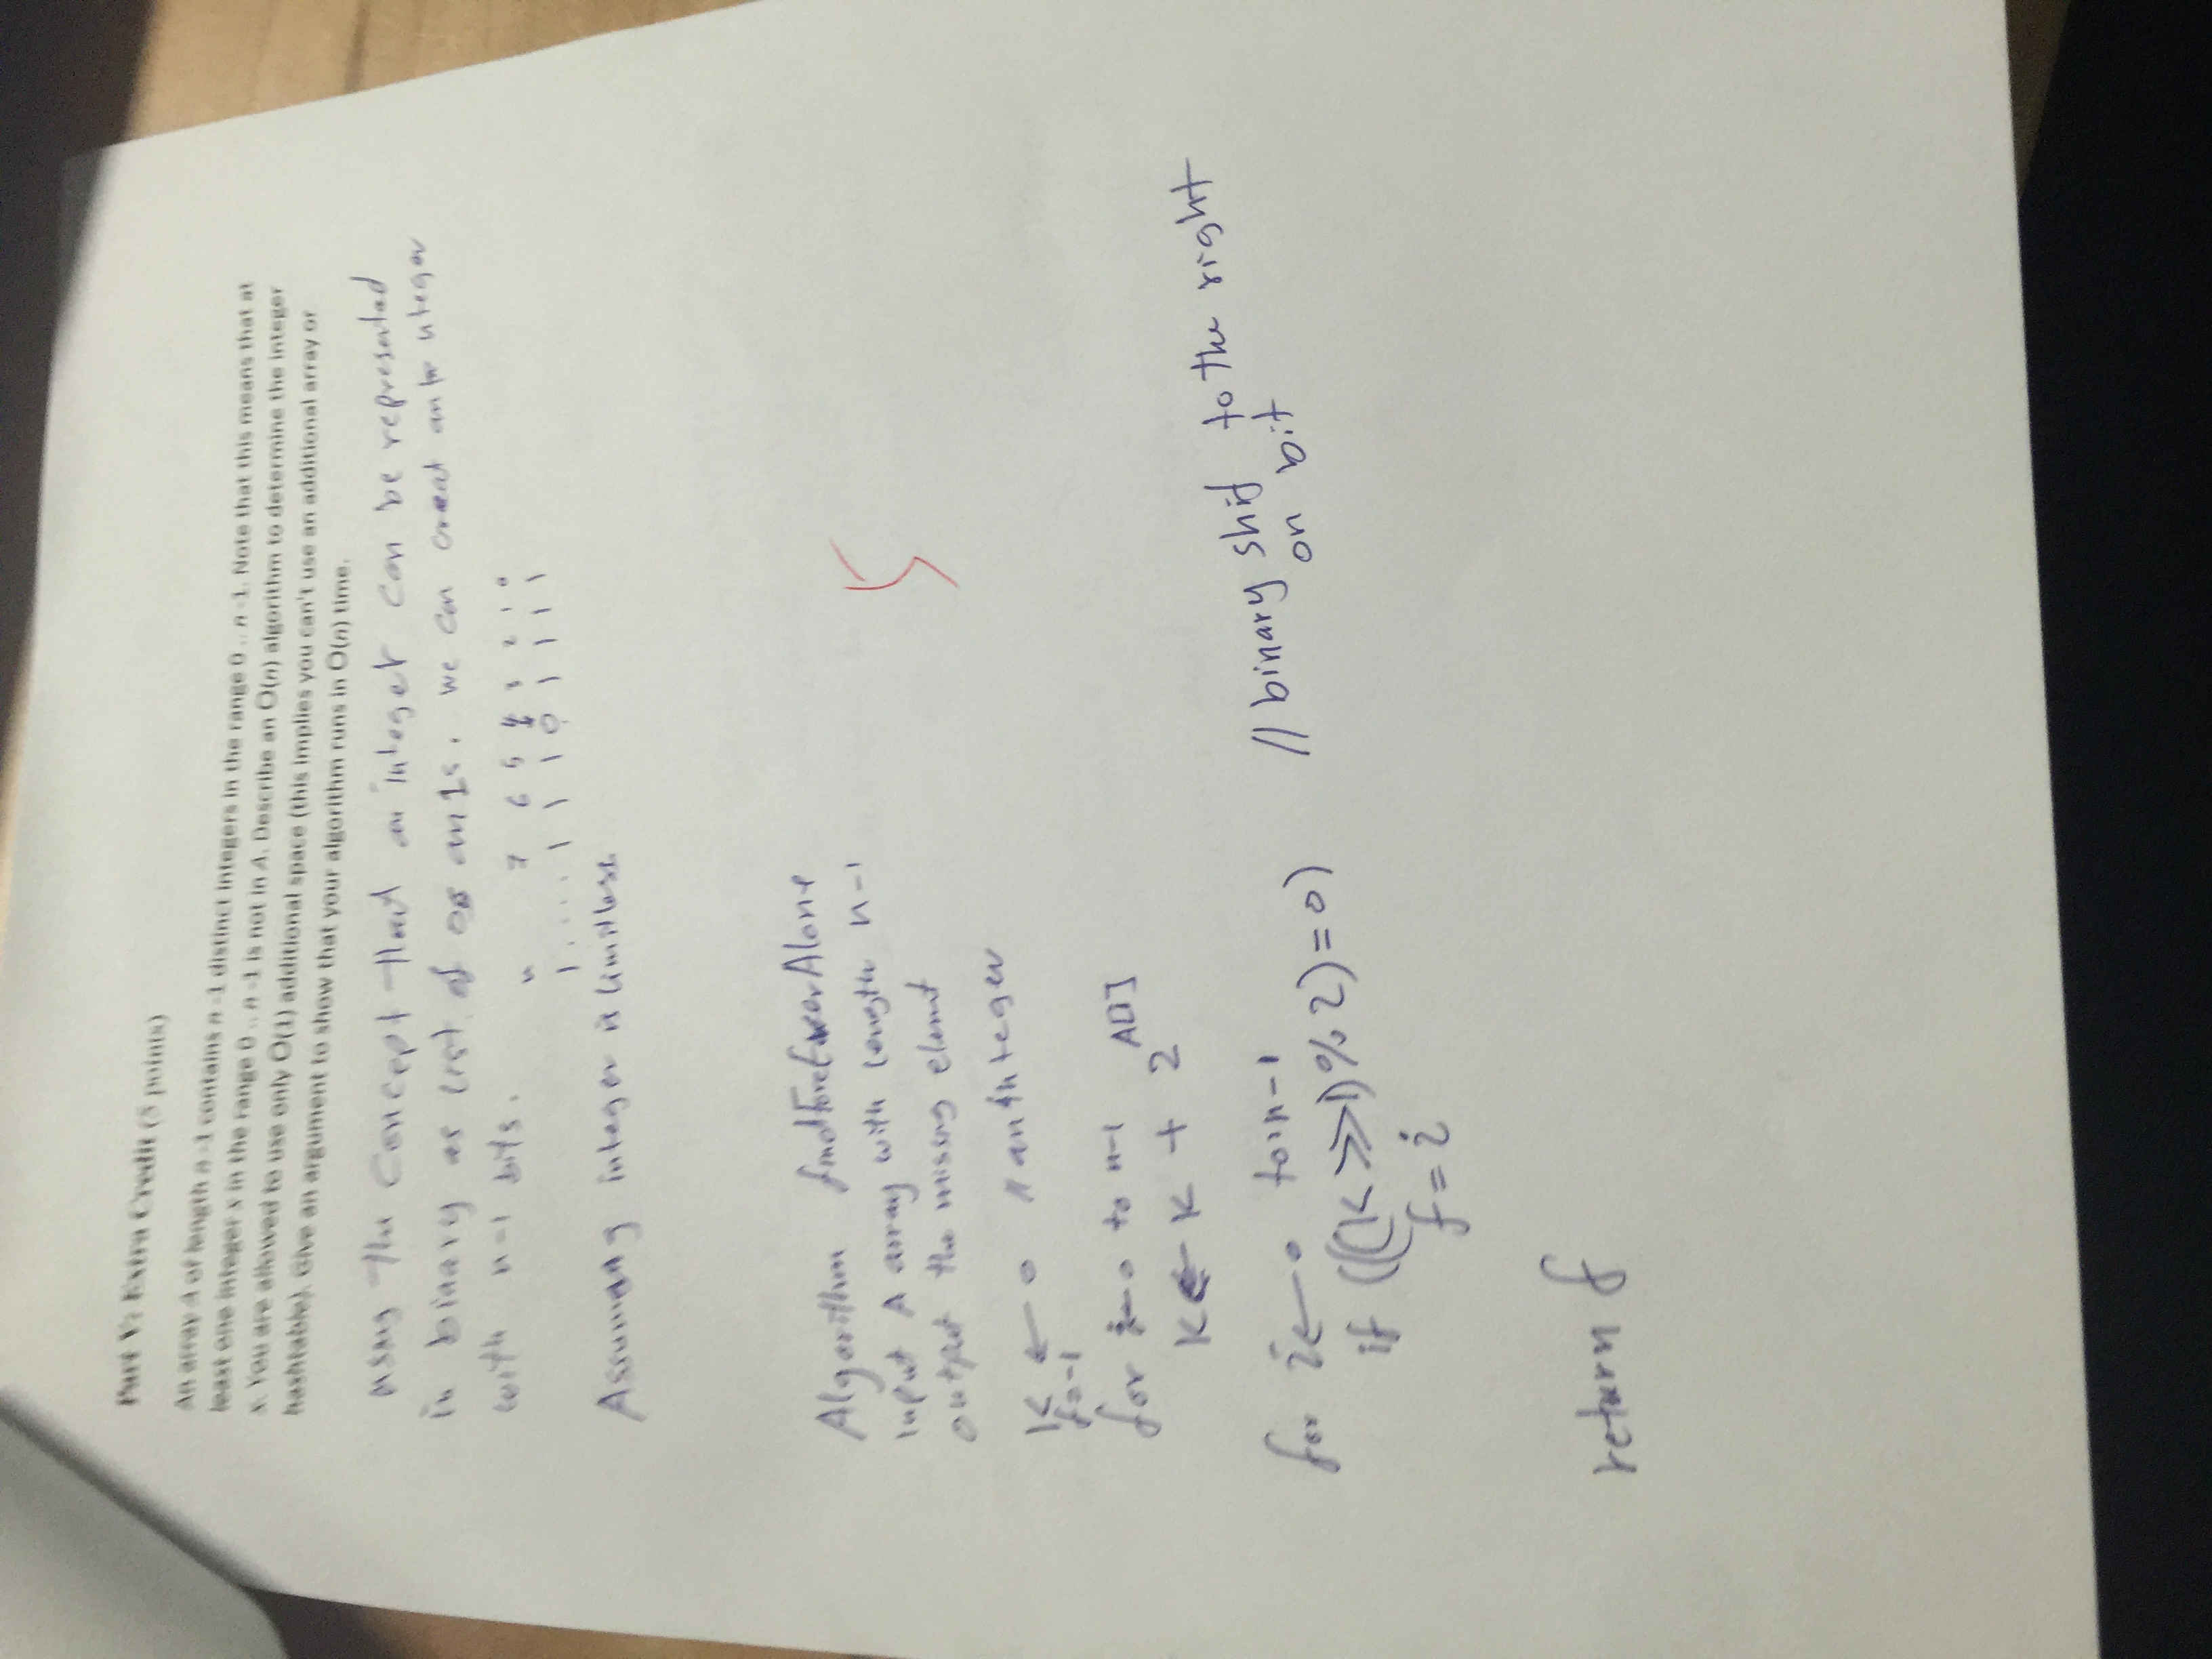 Part V: Extra Credit (5 points)
An array A of length n -1 contains n -1 distinct integers in the range 0 .. n -1. Note that this means that at
least one integer x in the range 0 .. n -1 is not in A. Describe an O(n) algorithm to determine the integer
x. You are allowed to use only O(1) additional space (this implies you can't use an additional array or
hashtable). Give an argument to show that your algorithm runs in O(n) time.
using the concept that an integer can be represented
in binary as list of 0s an 1s. we can creat an integer
with n-1 bits.
n 7 6 5 4 3 2 1 0
1 .... 1 1 1 0 1 1 1 1
Assuming integer is limitless
5
Algorithm
Input A array with length n-1
output the missng elemt
K ← 0 // an integer
f=-1
for i←0 to n-1
K ← K + 2^A[i]
for i←0 to n-1 // binary shif to the right
on bit
if (((K >>1)%2)=0)
f = i
return f